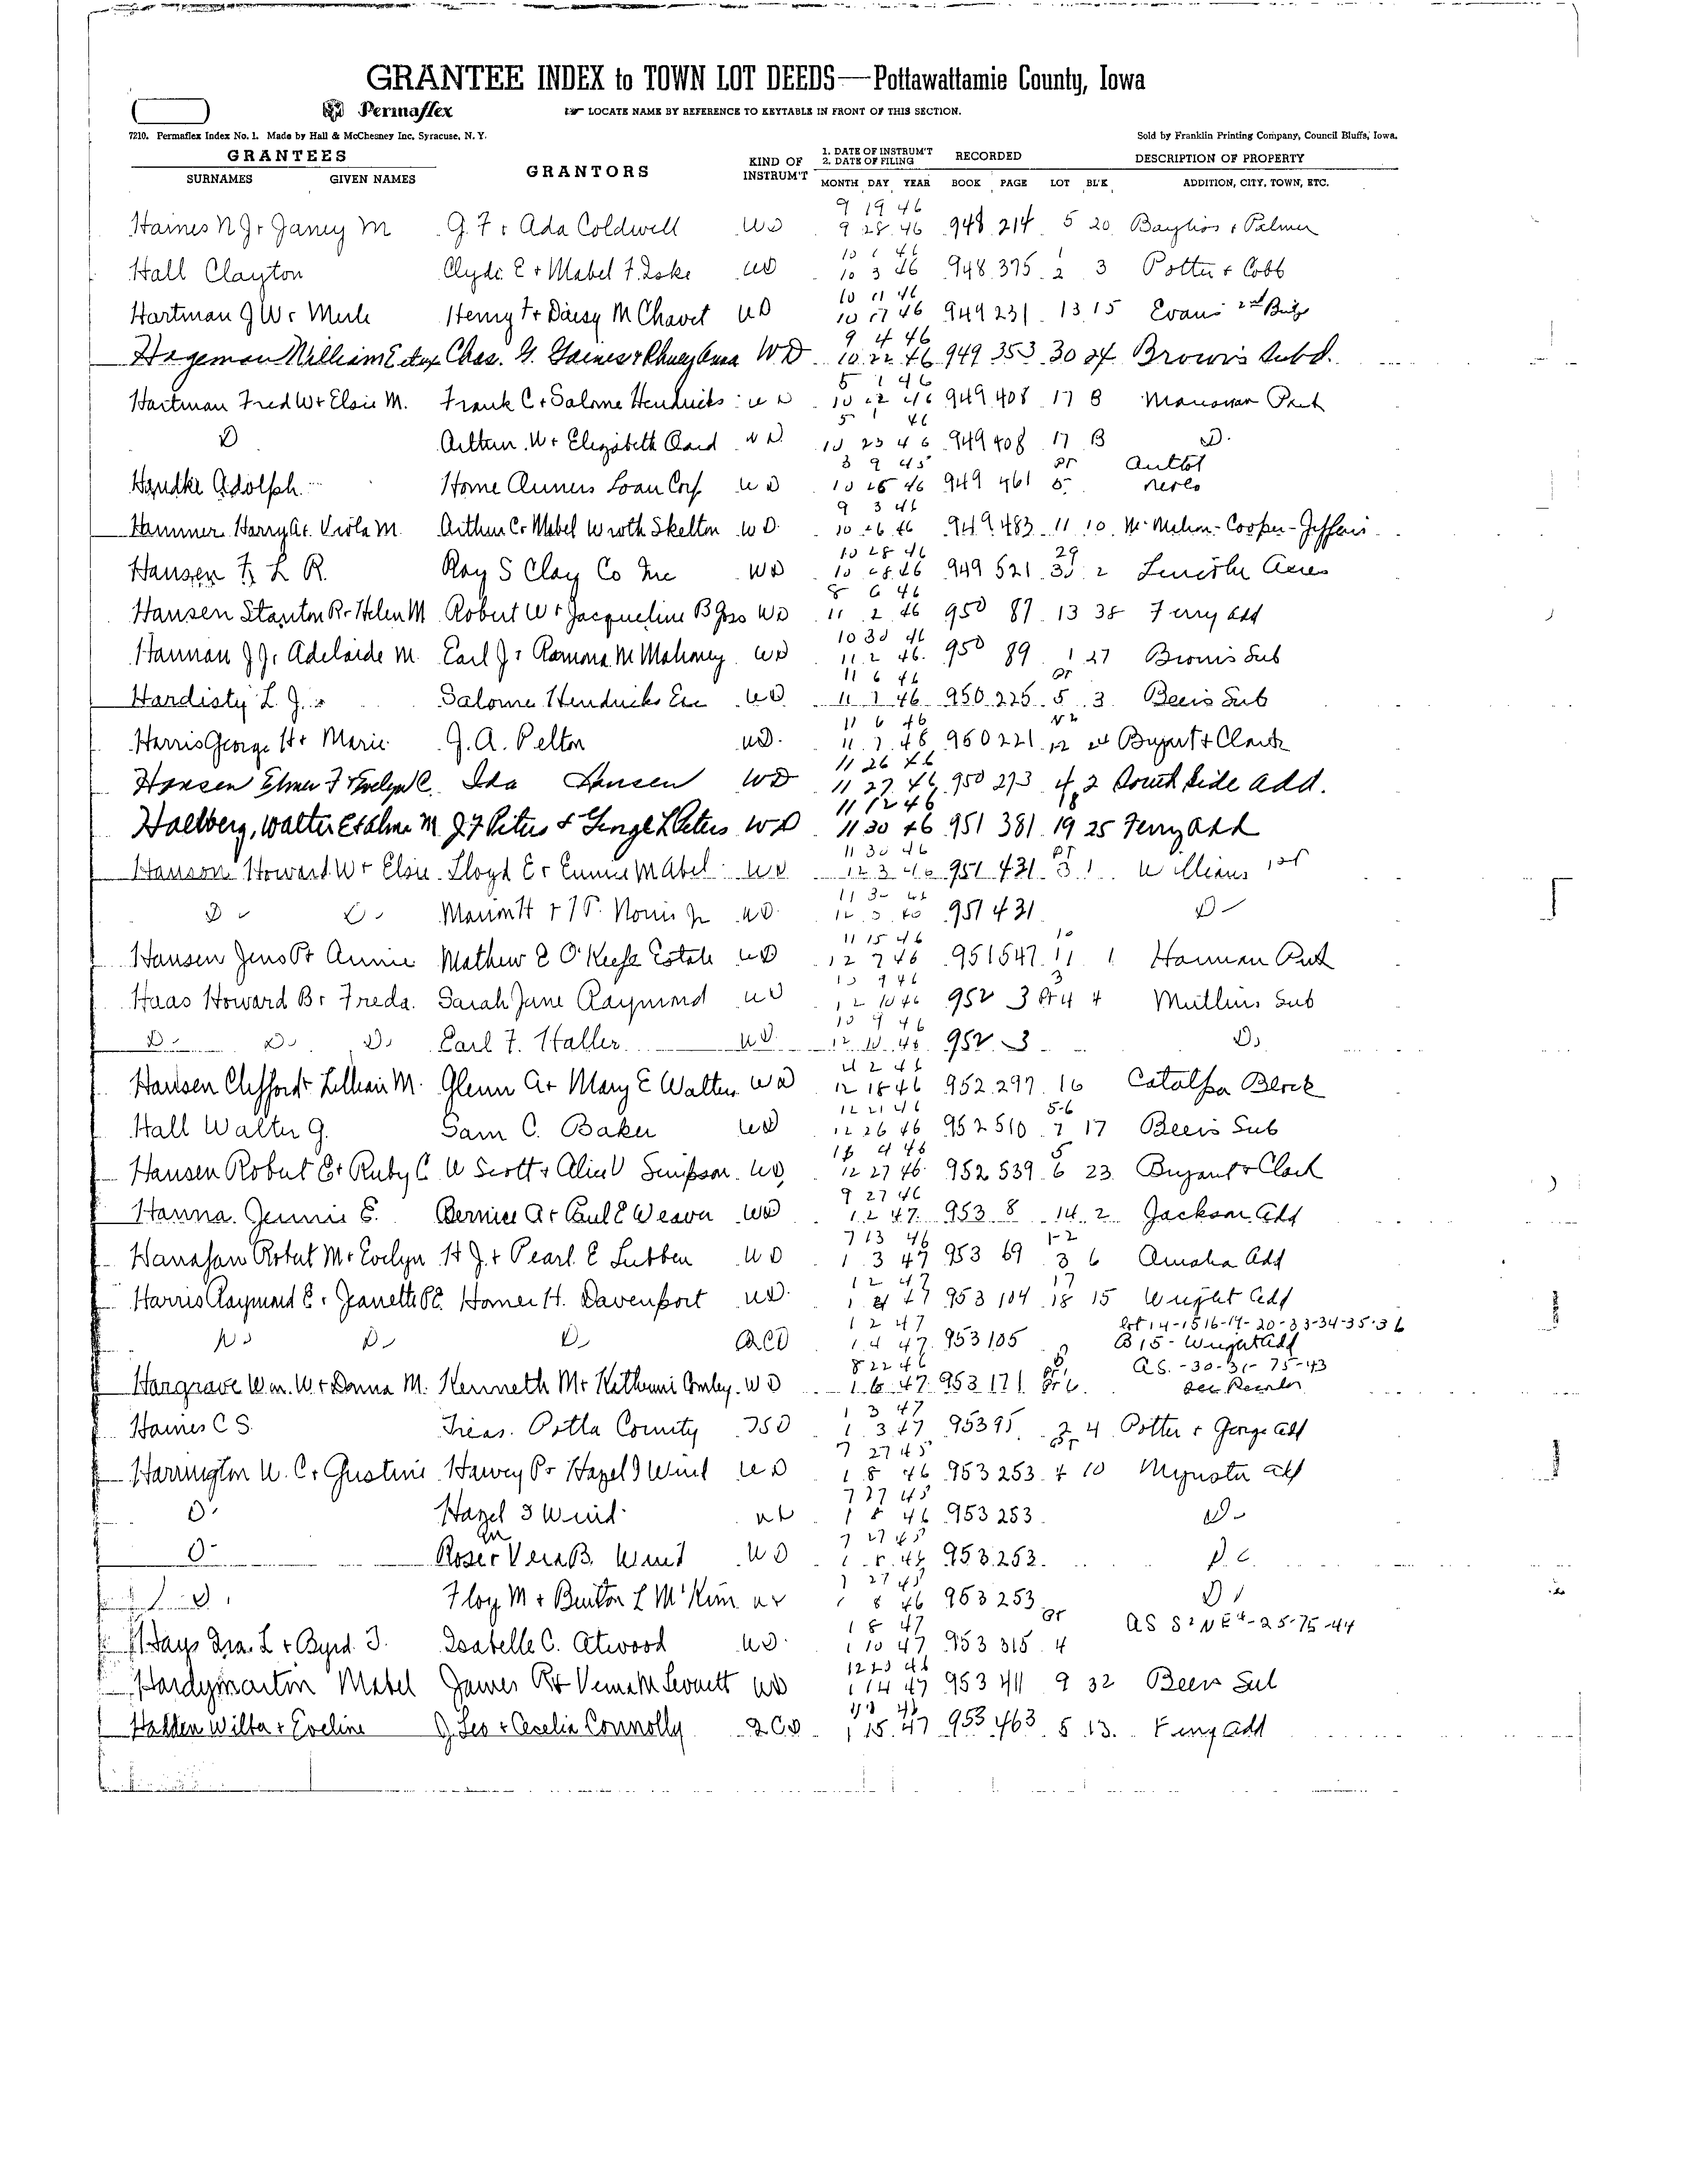 GRANTEE INDEX to TOWN LOT DEEDS—Pottawattamie County, Iowa
Permaflex LOCATE NAME BY REFERENCE TO KEYTABLE IN FRONT OF THIS SECTION.
7210. Permaflex Index No. 1. Made by Hall & McChesney Inc. Syracuse, N. Y. Sold by Franklin Printing Company, Council Bluffs, Iowa.
GRANTEES GRANTORS KIND OF INSTRUM'T 1. DATE OF INSTRUM'T 2. DATE OF FILING RECORDED DESCRIPTION OF PROPERTY
SURNAMES GIVEN NAMES MONTH DAY YEAR BOOK PAGE LOT BL'K ADDITION, CITY, TOWN, ETC.
9 19 46
Haines N J + Janey M G. F + Ada Coldwell WD 9 28 46 948 214 5 20 Bayliss + Palmer
10 1 46 1
Hall Clayton Clyde E + Mabel F. WD 10 3 46 948 375 2 3 Potter + Cobb
10 11 46
Hartman J W + Merle Henry F + Daisy M Chavet WD 10 17 46 949 231 13 15 Evans 2nd
9 4 46
Hageman William E etux Chas. G. Gaines + WD 10 22 46 949 353 30 24 Brown's Subd.
5 1 46
Hartman Fred W + Elsie M. Frank C + Salome Hendricks WD 10 22 46 949 408 17 B Park
5 1 46
D Arthur W + Elizabeth WD 10 23 46 949 408 17 B D.
3 9 45 pr Autlot
Handke Adolph Home Owners Loan Corp WD 10 25 46 949 461 5
9 3 46
Hammer Harry A + Viola M. Arthur C + Mabel Wroth Skelton WD 10 26 46 949 483 11 10 McMahon-Cooper-Jefferis
10 28 46 29
Hansen F. L R. Ray S Clay Co Inc WD 10 28 46 949 521 30 2 Lincoln Acres
8 6 46
Hansen Stanton R + Helen M Robert W + Jacqueline B WD 11 2 46 950 87 13 38 Ferry add
10 30 46
Hannan J J + Adelaide M. Earl J + Ramona M Mahoney WD 11 2 46 950 89 1 27 Browns Sub
11 6 46 pr
Hardisty L. J. Salome Hendricks Ex WD 11 7 46 950 225 5 3 Beers Sub
11 6 46 N 2
Harris George H + Marie J. A. Pelton WD 11 7 46 950 221 12 Bryant + Clark
11 26 46
Hansen Elmer F + Evelyn C. Ida Hansen WD 11 27 46 950 273 4 2 South Side Add.
11 12 46 18
Hallberg, Walter E + Alma M J F Peters + George L Peters WD 11 30 46 951 381 19 25 Ferry Add
11 30 46 pr
Hanson Howard W + Elsie Lloyd E + Eunice Mabel WD 12 3 46 951 431 3 1 Williams 1st
11 30 46
D D Marion H + WD 12 3 46 951 431 D
11 15 46 10
Hansen Jens P + Annie Mathew E O'Keefe Estate WD 12 7 46 951 547 11 1 Hannan Park
10 9 46 3
Haas Howard B + Freda Sarah Jane Raymond WD 12 10 46 952 3 4 Mullins Sub
10 9 46
D D D Earl F. Haller WD 12 10 46 952 3 D
46
Hansen Clifford + Lillian M. Glenn A + Mary E Walters WD 12 18 46 952 297 16 Catalpa Block
12 21 46 5-6
Hall Walter G. Sam C. Baker WD 12 26 46 952 510 7 17 Beers Sub
4 46 5
Hansen Robert E + Ruby C W Scott + Alice V Simpson WD 12 27 46 952 539 6 23 Bryant + Clark
9 27 46
Hanna Jennie E. Bernice A + Paul E Weaver WD 1 2 47 953 8 14 2 Jackson Add
7 13 46 1-2
Hanafan Robert M + Evelyn H J. + Pearl E Lubben WD 1 3 47 953 69 3 6 Omaha Add
1 2 47 17
Harris Raymond E + Janette Homer H. Davenport WD 1 4 47 953 104 18 15 Wright Add
1 2 47 lot 14-15 16-19-20-33-34-35-36
D D D ACD 1 4 47 953 105 B 15 - Wright Add
8 22 46 AS. -30-31-75-43
Hargrave Wm. W + Donna M. Kenneth M + WD 1 6 47 953 171 See Record
1 3 47
Haines C S. Treas. Potta County 1 3 47 953 95 3 4 Potter + George add
7 27 45 pr
Harrington W. C + Gustine Harvey P + Hazel I Wind WD 1 8 46 953 253 4 10 Mynster add
7 27 45
D Hazel I Wind 1 8 46 953 253 D
7 27 45
D Rose + Vera B. Wind WD 1 8 46 953 253
7 27 45
D Floy M + Burton L McKim 1 8 46 953 253 D
1 8 47 pr AS S 2 NE 4-25-75-44
Hays Ira L + Byrd I. Isabelle C. Atwood WD 1 10 47 953 315 4
12 23 46
Hardymartin Mabel James R + Verna M Levnett WD 1 14 47 953 411 9 32 Beers Sub
Halden Wilbur + Eveline J. Leo + Cecelia Connolly QCD 1 15 47 953 463 5 13 Ferry Add